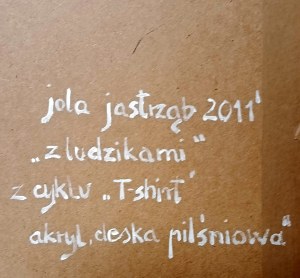 jola jastrząb 2011'
„z ludzikami"
z cyklu „T-shirt"
akryl, deska pilśniowa"